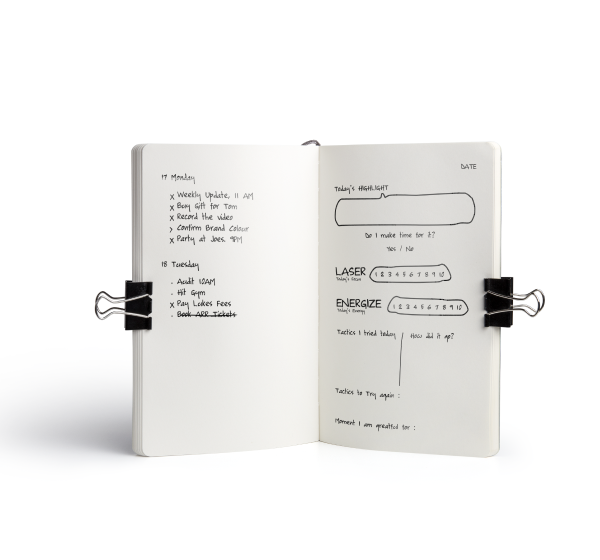 17 Monday
x Weekly Update, 11 AM
x Buy Gift for Tom
x Record the video
> Confirm Brand Colour
x Party at Joes. 9PM
18 Tuesday
. Audit 10AM
. Hit Gym
x Pay Lukes Fees
. Book ARR Tickets
DATE
Today's HIGHLIGHT
Do I make time for it?
Yes / No
LASER
Today's Focus
1 2 3 4 5 6 7 8 9 10
ENERGIZE
Today's Energy
1 2 3 4 5 6 7 8 9 10
Tactics I tried today
How did it go?
Tactics to Try again :
Moment I am greatful for :